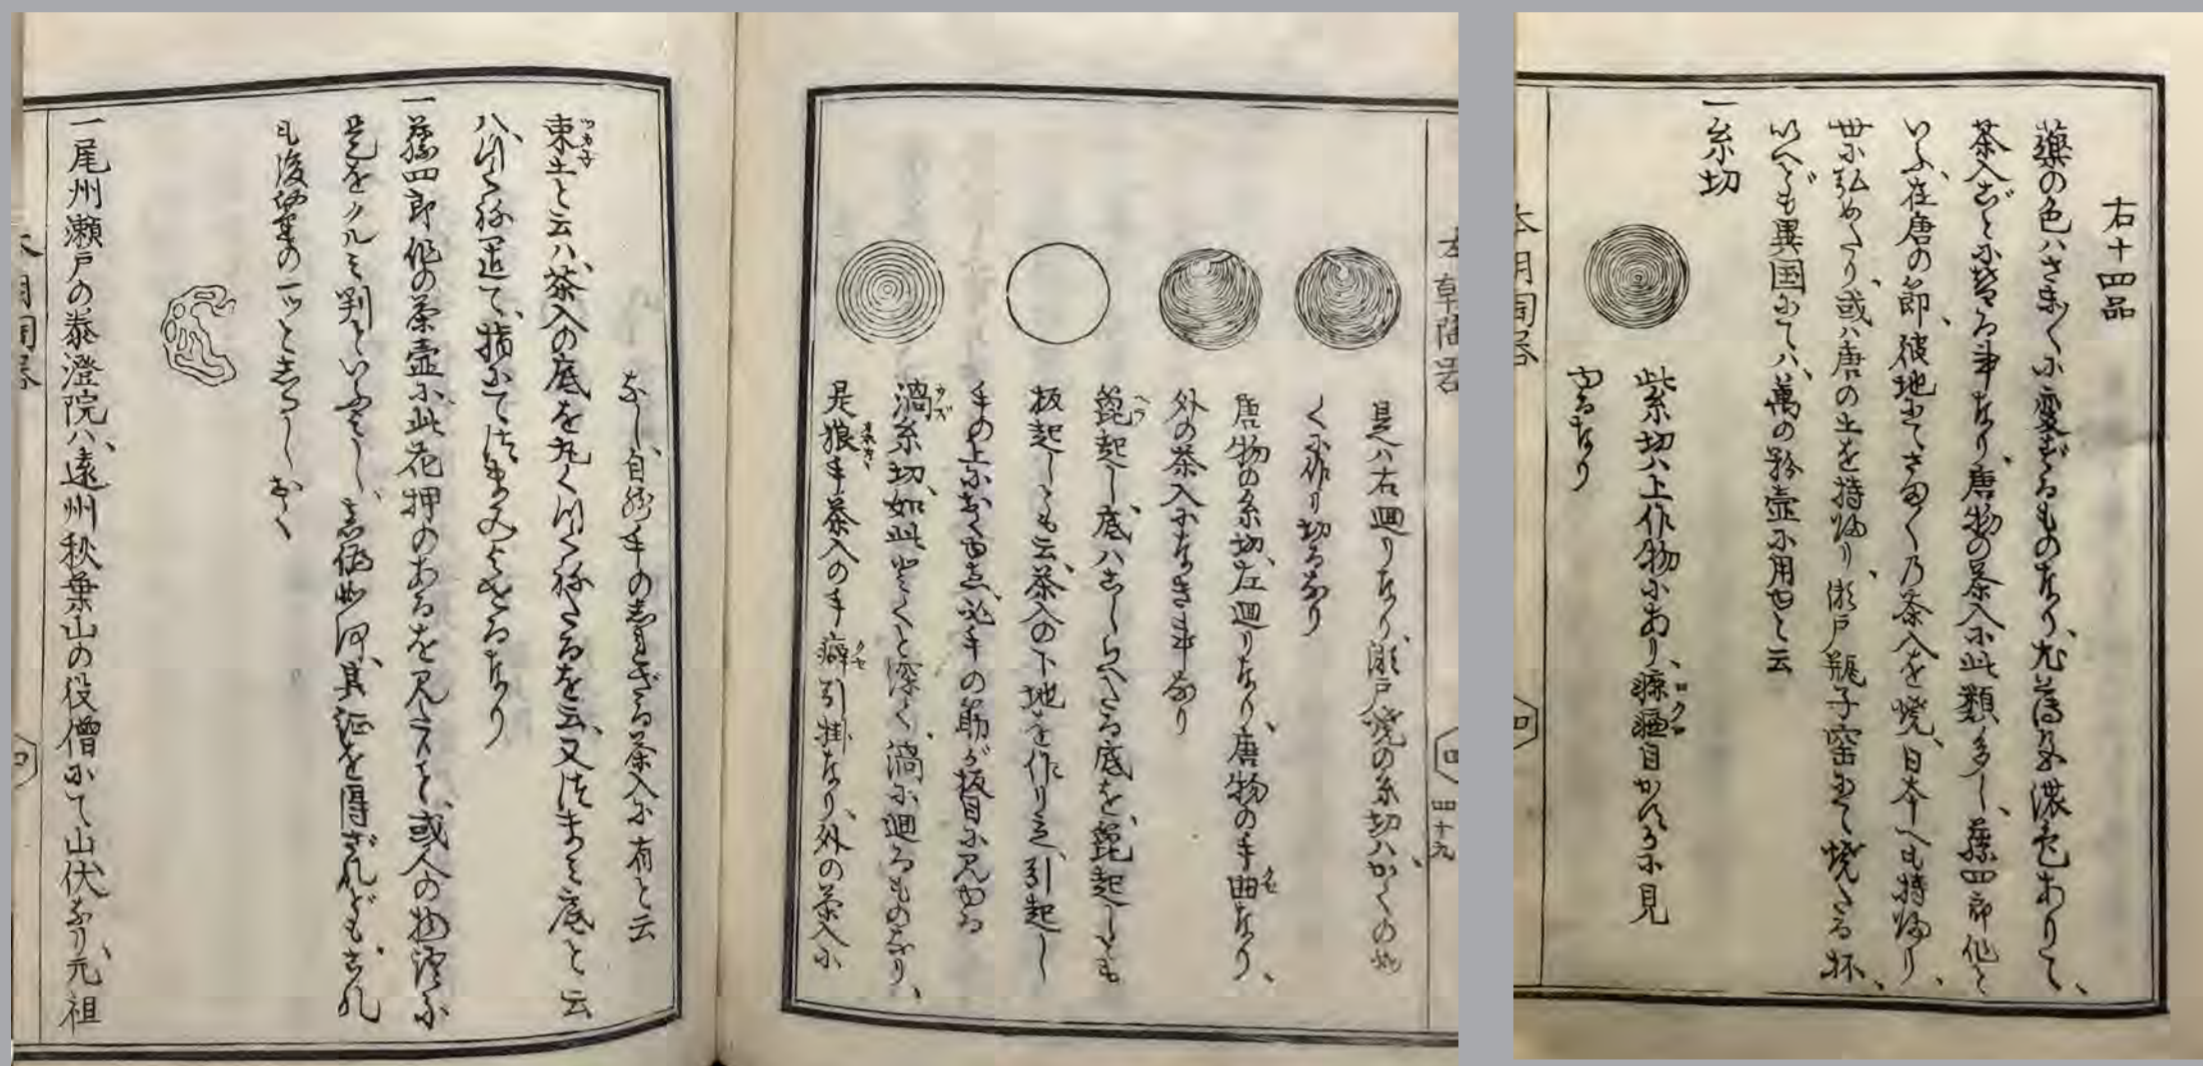 右十四品
薬の色ハさま〴〵に変ずるものなり、尤薄及濃色ありて、
茶入ごとに替る事なり、唐物の茶入に此類多し、藤四郎作と
いふ、在唐の節、彼地にてさま〴〵乃茶入を焼、日本へも持帰り、
世に弘めたり、或ハ唐の土を持帰り、瀬戸瓶子窑にて焼たる抔、
いへども異国にてハ、萬の粉壷に用ゆと云
一糸切
此糸切ハ上作物にあり、轆轤目かすかに見
ゆるなり
ロクロ
是ハ右廻りなり、瀬戸焼の糸切ハかくの如
くに作り切るなり
唐物の糸切、左廻りなり、唐物の手曲なり、
クセ
外の茶入になき事なり
箆起し、底ハこしらへたる底を、箆起しとも
ヘラ
板起しとも云、茶入の下地を作り立、引起し
手の上におくゆへ、必手の筋が板目に見ゆる
渦糸切、如此堂々と深く、渦に廻るものなり、
ウズ
是狼手茶入の手癖引掛なり、外の茶入に
クセ
なし、自然手のしれざる茶入に有と云
東土と云ハ、茶入の底を丸くひねりたるを云、又つまミ底と云
ハ、ひねり廻て、指にてつまみよせるなり
一藤四郎作の茶壷に此花押のあるを見たりと、或人の物語に
是をクルミ判といふよし、真偽如何、其証を得ざれども、これ
も後鑒の一ツとしるしおく
一尾州瀬戸の泰澄院ハ、遠州秋葉山の役僧にて山伏なり、元祖
本朝陶器
四
四十九